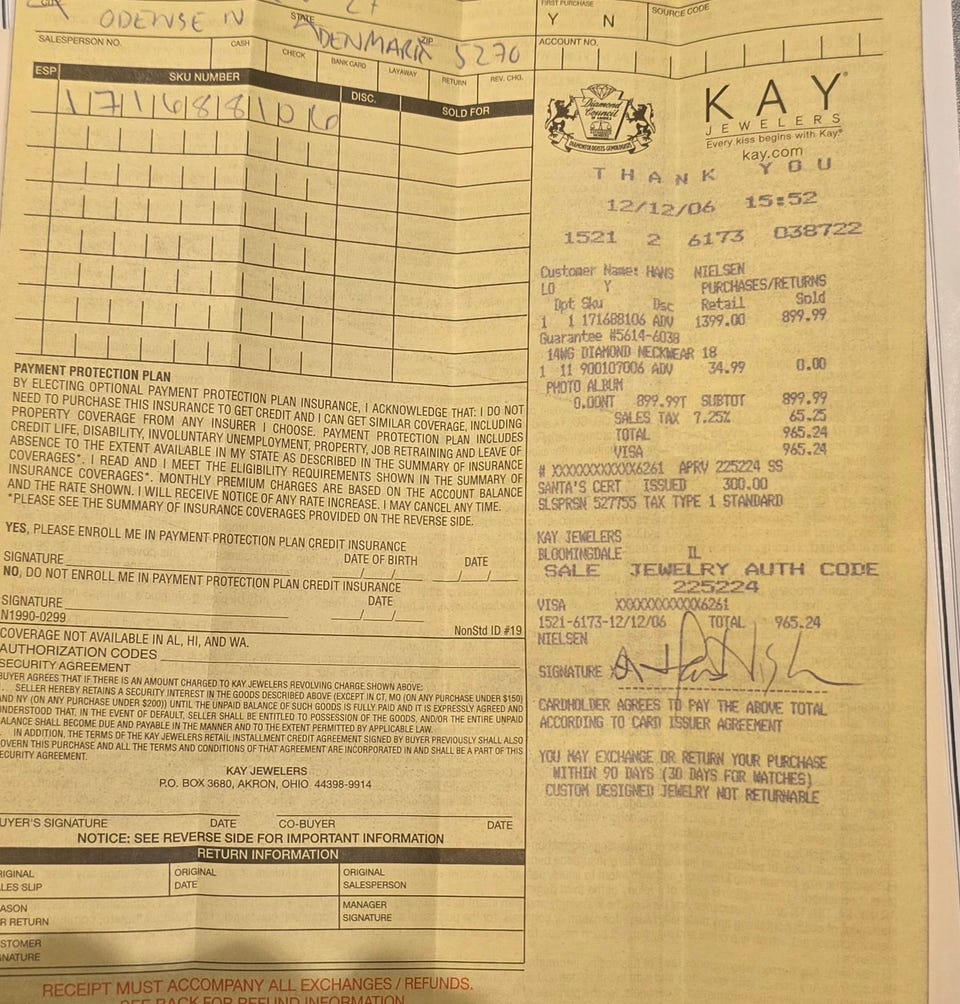 ODENSE N
STATE
DENMARK
ZIP
5270
SALESPERSON NO.
CASH
CHECK
BANK CARD
LAYAWAY
RETURN
REV. CHG.
ESP
SKU NUMBER
DISC.
SOLD FOR
171688106
PAYMENT PROTECTION PLAN
BY ELECTING OPTIONAL PAYMENT PROTECTION PLAN INSURANCE, I ACKNOWLEDGE THAT: I DO NOT
NEED TO PURCHASE THIS INSURANCE TO GET CREDIT AND I CAN GET SIMILAR COVERAGE, INCLUDING
PROPERTY COVERAGE FROM ANY INSURER I CHOOSE. PAYMENT PROTECTION PLAN INCLUDES
CREDIT LIFE, DISABILITY, INVOLUNTARY UNEMPLOYMENT, PROPERTY, JOB RETRAINING AND LEAVE OF
ABSENCE TO THE EXTENT AVAILABLE IN MY STATE AS DESCRIBED IN THE SUMMARY OF INSURANCE
COVERAGES*. I READ AND I MEET THE ELIGIBILITY REQUIREMENTS SHOWN IN THE SUMMARY OF
INSURANCE COVERAGES*. MONTHLY PREMIUM CHARGES ARE BASED ON THE ACCOUNT BALANCE
AND THE RATE SHOWN. I WILL RECEIVE NOTICE OF ANY RATE INCREASE. I MAY CANCEL ANY TIME.
*PLEASE SEE THE SUMMARY OF INSURANCE COVERAGES PROVIDED ON THE REVERSE SIDE.
YES, PLEASE ENROLL ME IN PAYMENT PROTECTION PLAN CREDIT INSURANCE
SIGNATURE
DATE OF BIRTH
DATE
NO, DO NOT ENROLL ME IN PAYMENT PROTECTION PLAN CREDIT INSURANCE
SIGNATURE
DATE
N1990-0299
NonStd ID #19
COVERAGE NOT AVAILABLE IN AL, HI, AND WA.
AUTHORIZATION CODES
SECURITY AGREEMENT
BUYER AGREES THAT IF THERE IS AN AMOUNT CHARGED TO KAY JEWELERS REVOLVING CHARGE SHOWN ABOVE:
SELLER HEREBY RETAINS A SECURITY INTEREST IN THE GOODS DESCRIBED ABOVE (EXCEPT IN CT, MO (ON ANY PURCHASE UNDER $150)
AND NY (ON ANY PURCHASE UNDER $200)) UNTIL THE UNPAID BALANCE OF SUCH GOODS IS FULLY PAID AND IT IS EXPRESSLY AGREED AND
UNDERSTOOD THAT, IN THE EVENT OF DEFAULT, SELLER SHALL BE ENTITLED TO POSSESSION OF THE GOODS, AND/OR THE ENTIRE UNPAID
BALANCE SHALL BECOME DUE AND PAYABLE IN THE MANNER AND TO THE EXTENT PERMITTED BY APPLICABLE LAW.
IN ADDITION, THE TERMS OF THE KAY JEWELERS RETAIL INSTALLMENT CREDIT AGREEMENT SIGNED BY BUYER PREVIOUSLY SHALL ALSO
GOVERN THIS PURCHASE AND ALL THE TERMS AND CONDITIONS OF THAT AGREEMENT ARE INCORPORATED IN AND SHALL BE A PART OF THIS
SECURITY AGREEMENT.
KAY JEWELERS
P.O. BOX 3680, AKRON, OHIO 44398-9914
BUYER'S SIGNATURE
DATE
CO-BUYER
DATE
NOTICE: SEE REVERSE SIDE FOR IMPORTANT INFORMATION
RETURN INFORMATION
ORIGINAL
SALES SLIP
ORIGINAL
DATE
ORIGINAL
SALESPERSON
REASON
FOR RETURN
MANAGER
SIGNATURE
CUSTOMER
SIGNATURE
RECEIPT MUST ACCOMPANY ALL EXCHANGES / REFUNDS.
SEE BACK FOR REFUND INFORMATION
FIRST PURCHASE
Y N
SOURCE CODE
ACCOUNT NO.
Diamond
Council
OF AMERICA
KAY®
JEWELERS
Every kiss begins with Kay.®
kay.com
THANK YOU
12/12/06 15:52
1521 2 6173 038722
Customer Name: HANS NIELSEN
LO Y PURCHASES/RETURNS
Dpt Sku Dsc Retail Sold
1 1 171688106 ADV 1399.00 899.99
Guarantee #5614-6038
14WG DIAMOND NECKWEAR 18
1 11 900107006 ADV 34.99 0.00
PHOTO ALBUM
0.00NT 899.99T SUBTOT 899.99
SALES TAX 7.25% 65.25
TOTAL 965.24
VISA 965.24
# XXXXXXXXXXXX6261 APRV 225224 SS
SANTA'S CERT ISSUED 300.00
SLSPRSN 527755 TAX TYPE 1 STANDARD
KAY JEWELERS
BLOOMINGDALE IL
SALE JEWELRY AUTH CODE
225224
VISA XXXXXXXXXXXX6261
1521-6173-12/12/06 TOTAL 965.24
NIELSEN
SIGNATURE X
CARDHOLDER AGREES TO PAY THE ABOVE TOTAL
ACCORDING TO CARD ISSUER AGREEMENT
YOU MAY EXCHANGE OR RETURN YOUR PURCHASE
WITHIN 90 DAYS (30 DAYS FOR WATCHES)
CUSTOM DESIGNED JEWELRY NOT RETURNABLE